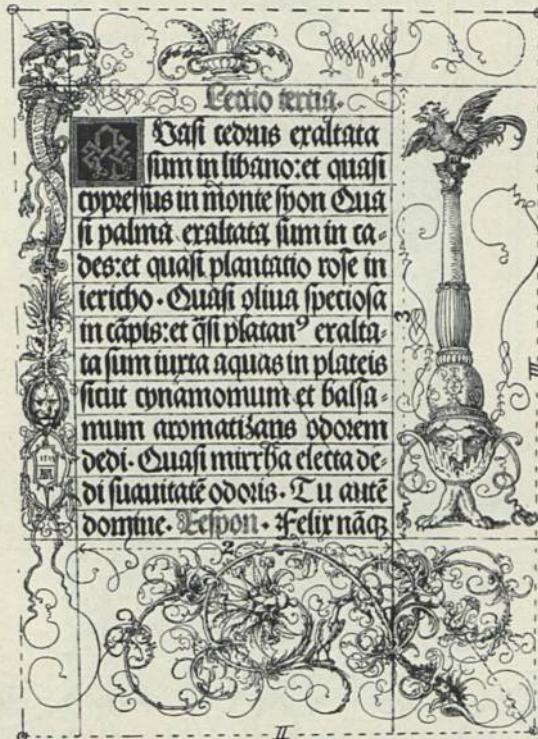 Lectio tertia.
Quasi cedrus exaltata
sum in libano: et quasi
cypressus in monte syon Qua
si palma exaltata sum in ca-
des: et quasi plantatio rose in
iericho. Quasi oliua speciosa
in cāpis: et q̄si platanꝰ exalta-
ta sum iuxta aquas in plateis
sicut cynamomum et balsa-
mum aromatizans odorem
dedi. Quasi mirrha electa de-
di suauitatē odoris. Tu autē
domine. Respon. Felix nāqꝫ
2
3
II
III